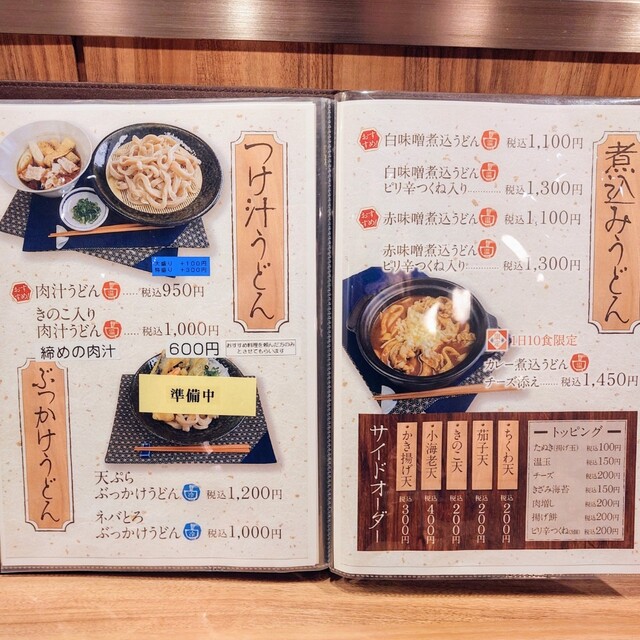 つけ汁うどん
大盛り +100円
特盛り +300円
おすすめ 肉汁うどん 温 ..... 税込950円
きのこ入り
肉汁うどん 温 ..... 税込1,000円
締めの肉汁 600円
おすすめ料理を頼んだ方のみ
とさせてもらいます
ぶっかけうどん
準備中
天ぷら
ぶっかけうどん 税込1,200円
ネバとろ
ぶっかけうどん 税込1,000円
煮込みうどん
おすすめ 白味噌煮込うどん 温 税込1,100円
白味噌煮込うどん 温
ピリ辛つくね入り 税込1,300円
おすすめ 赤味噌煮込うどん 温 税込1,100円
赤味噌煮込うどん 温
ピリ辛つくね入り 税込1,300円
1日10食限定
カレー煮込うどん 温
チーズ添え 税込1,450円
サイドオーダー
かき揚げ天 税込300円
小海老天 税込400円
きのこ天 税込200円
茄子天 税込200円
ちくわ天 税込200円
トッピング
たぬき(揚げ玉) 税込100円
温玉 税込150円
チーズ 税込200円
きざみ海苔 税込150円
肉増し 税込200円
揚げ餅 税込200円
ピリ辛つくね 税込200円